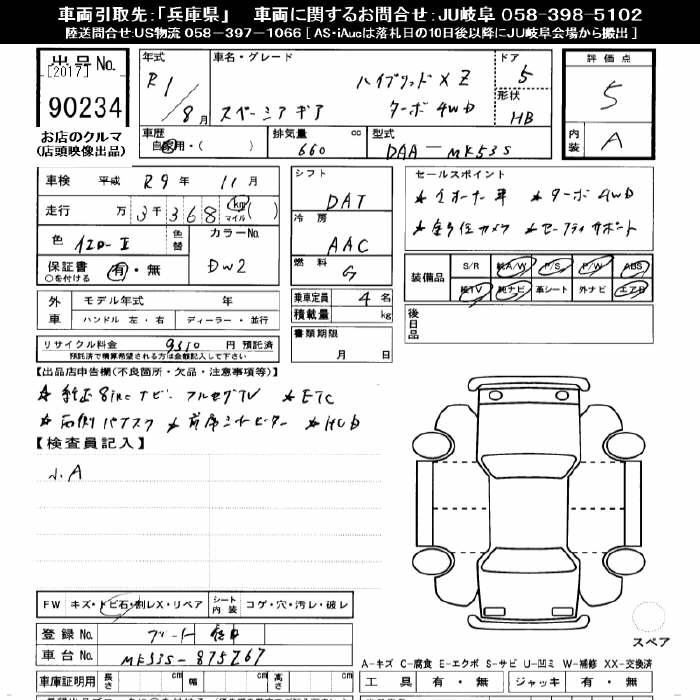 車両引取先:「兵庫県」 車両に関するお問合せ:JU岐阜 058-398-5102
陸送問合せ:US物流 058-397-1066 [ AS・iAucは落札日の10日後以降にJU岐阜会場から搬出 ]
出品No.
[2017]
90234
お店のクルマ
(店頭映像出品)
年式 R1/8月
車名・グレード スペーシアギア ハイブリッドXZ ターボ4WD
ドア 5
形状 HB
評価点 5
内装 A
車歴 自家用・( )
排気量 660 cc
型式 DAA-MK53S
車検 平成 R9年 11月
走行 万 3千368 km マイル ( )
色 イエロー-II 色替
カラーNo. DW2
保証書 有・無
○を付ける
シフト DAT
冷房 AAC
燃料 G
セールスポイント
★ワンオーナー車 ★ターボ4WD
★全方位カメラ ★セーフティサポート
装備品 S/R 純A/W P/S P/W ABS
純TV 純ナビ 革シート 外ナビ エアB
外車 モデル年式 年
ハンドル 左・右 ディーラー・並行
乗車定員 4名
積載量 kg
後日品
リサイクル料金 9510円 預託済
預託済で精算希望される方は金額記入して下さい
書類期限 月 日
【出品店申告欄(不良箇所・欠品・注意事項等)】
★純正8incナビ フルセグTV ★ETC
★両側パワスラ ★前席シートヒーター ★HUD
【検査員記入】
小A
FW キズ・トビ石・割レX・リペア シート内装 コゲ・穴・汚レ・破レ
登録No.
車台No. MK53S-875267
スペア
A-キズ C-腐食 E-エクボ S-サビ U-凹ミ W-補修 XX-交換済
車庫証明用 長さ cm 幅 cm 高さ cm
工具 有・無 ジャッキ 有・無